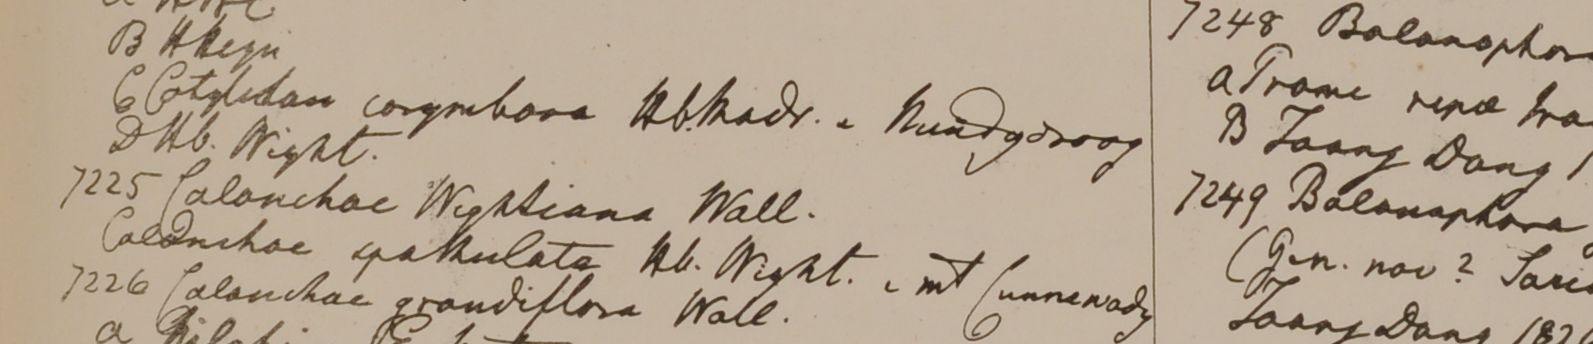 B H Heyn
C Cotyledon corymbosa Hb. Madr. e Nundydroog
D Hb. Wight.
7225 Calanchoe Wightiana Wall.
Calanchoe spathulata Hb. Wight. e mt Cunnawady
7226 Calanchoe grandiflora Wall.
a
7248 Balanophora
a Prome ripæ
B Taong Dong
7249 Balanophora
(Gen. nov?
Taong Dong 1826